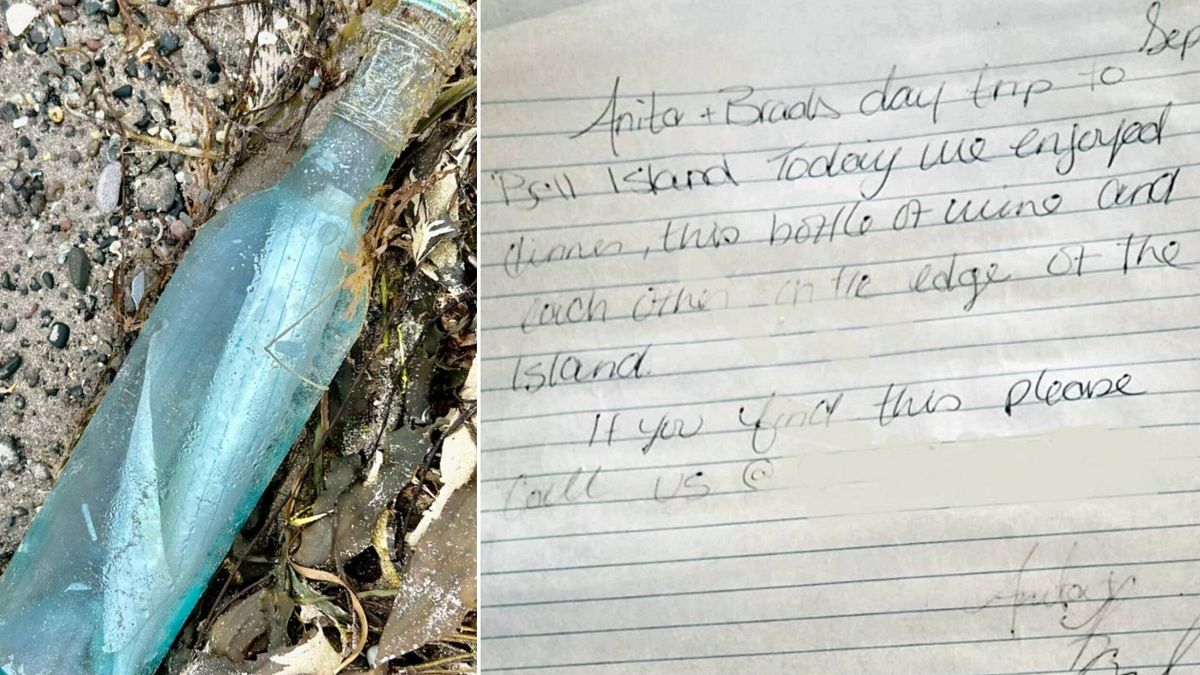 Sep
Anita + Brads day trip to
Bell Island Today we enjoyed
dinner, this bottle of wine and
each other on the edge of the
Island.
If you find this please
Call us @
Anita &
Brad